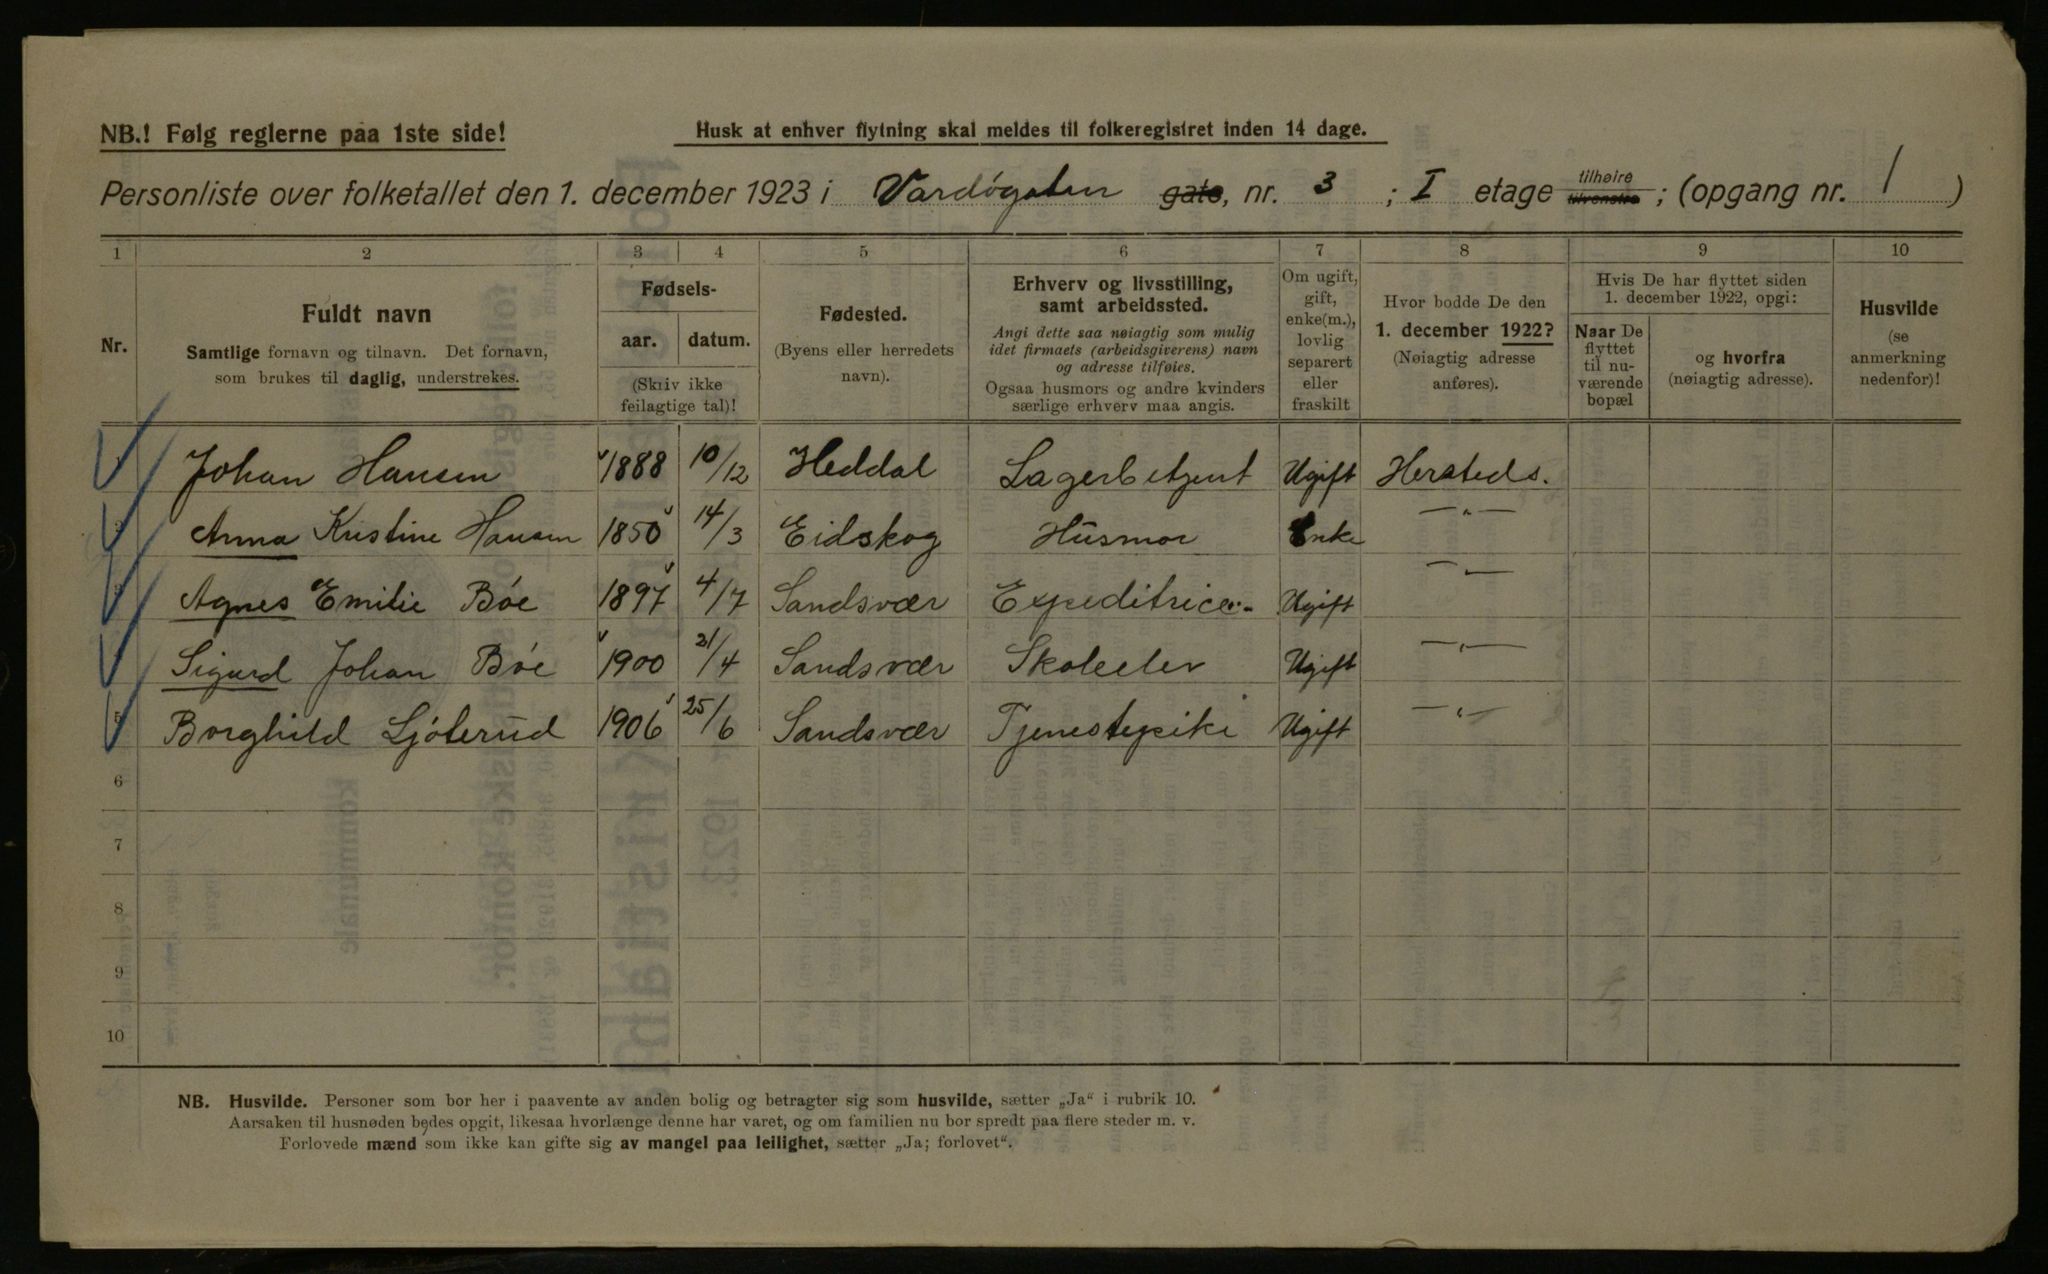 NB.! Følg reglerne paa 1ste side!
Husk at enhver flytning skal meldes til folkeregistret inden 14 dage.
Personliste over folketallet den 1. december 1923 i Vardøgaten gate, nr. 3 ; I etage tilhøire tilvenstre ; (opgang nr. 1 )
1 2 3 4 5 6 7 8 9 10
Nr.
Fuldt navn
Samtlige fornavn og tilnavn. Det fornavn,
som brukes til daglig, understrekes.
Fødsels-
aar. datum.
(Skriv ikke
feilagtige tal)!
Fødested.
(Byens eller herredets
navn).
Erhverv og livsstilling,
samt arbeidssted.
Angi dette saa nøiagtig som mulig
idet firmaets (arbeidsgiverens) navn
og adresse tilføies.
Ogsaa husmors og andre kvinders
særlige erhverv maa angis.
Om ugift,
gift,
enke(m.),
lovlig
separert
eller
fraskilt
Hvor bodde De den
1. december 1922?
(Nøiagtig adresse
anføres).
Hvis De har flyttet siden
1. december 1922, opgi:
Naar De
flyttet
til nu-
værende
bopæl
og hvorfra
(nøiagtig adresse).
Husvilde
(se
anmerkning
nedenfor)!
1 Johan Hansen 1888 10/12 Heddal Lagerbetjent Ugift Hersteds.
2 Anna Kristine Hansen 1850 14/3 Eidskog Husmor Enke —„—
3 Agnes Emilie Bóe 1897 4/7 Sandsvær Expeditrice Ugift —„—
4 Sigurd Johan Bóe 1900 21/4 Sandsvær Skoleelev Ugift —„—
5 Borghild Ljóterud 1906 25/6 Sandsvær Tjenestepike Ugift —„—
6
7
8
9
10
NB. Husvilde. Personer som bor her i paavente av anden bolig og betragter sig som husvilde, sætter „Ja“ i rubrik 10.
Aarsaken til husnøden bedes opgit, likesaa hvorlænge denne har varet, og om familien nu bor spredt paa flere steder m. v.
Forlovede mænd som ikke kan gifte sig av mangel paa leilighet, sætter „Ja; forlovet“.